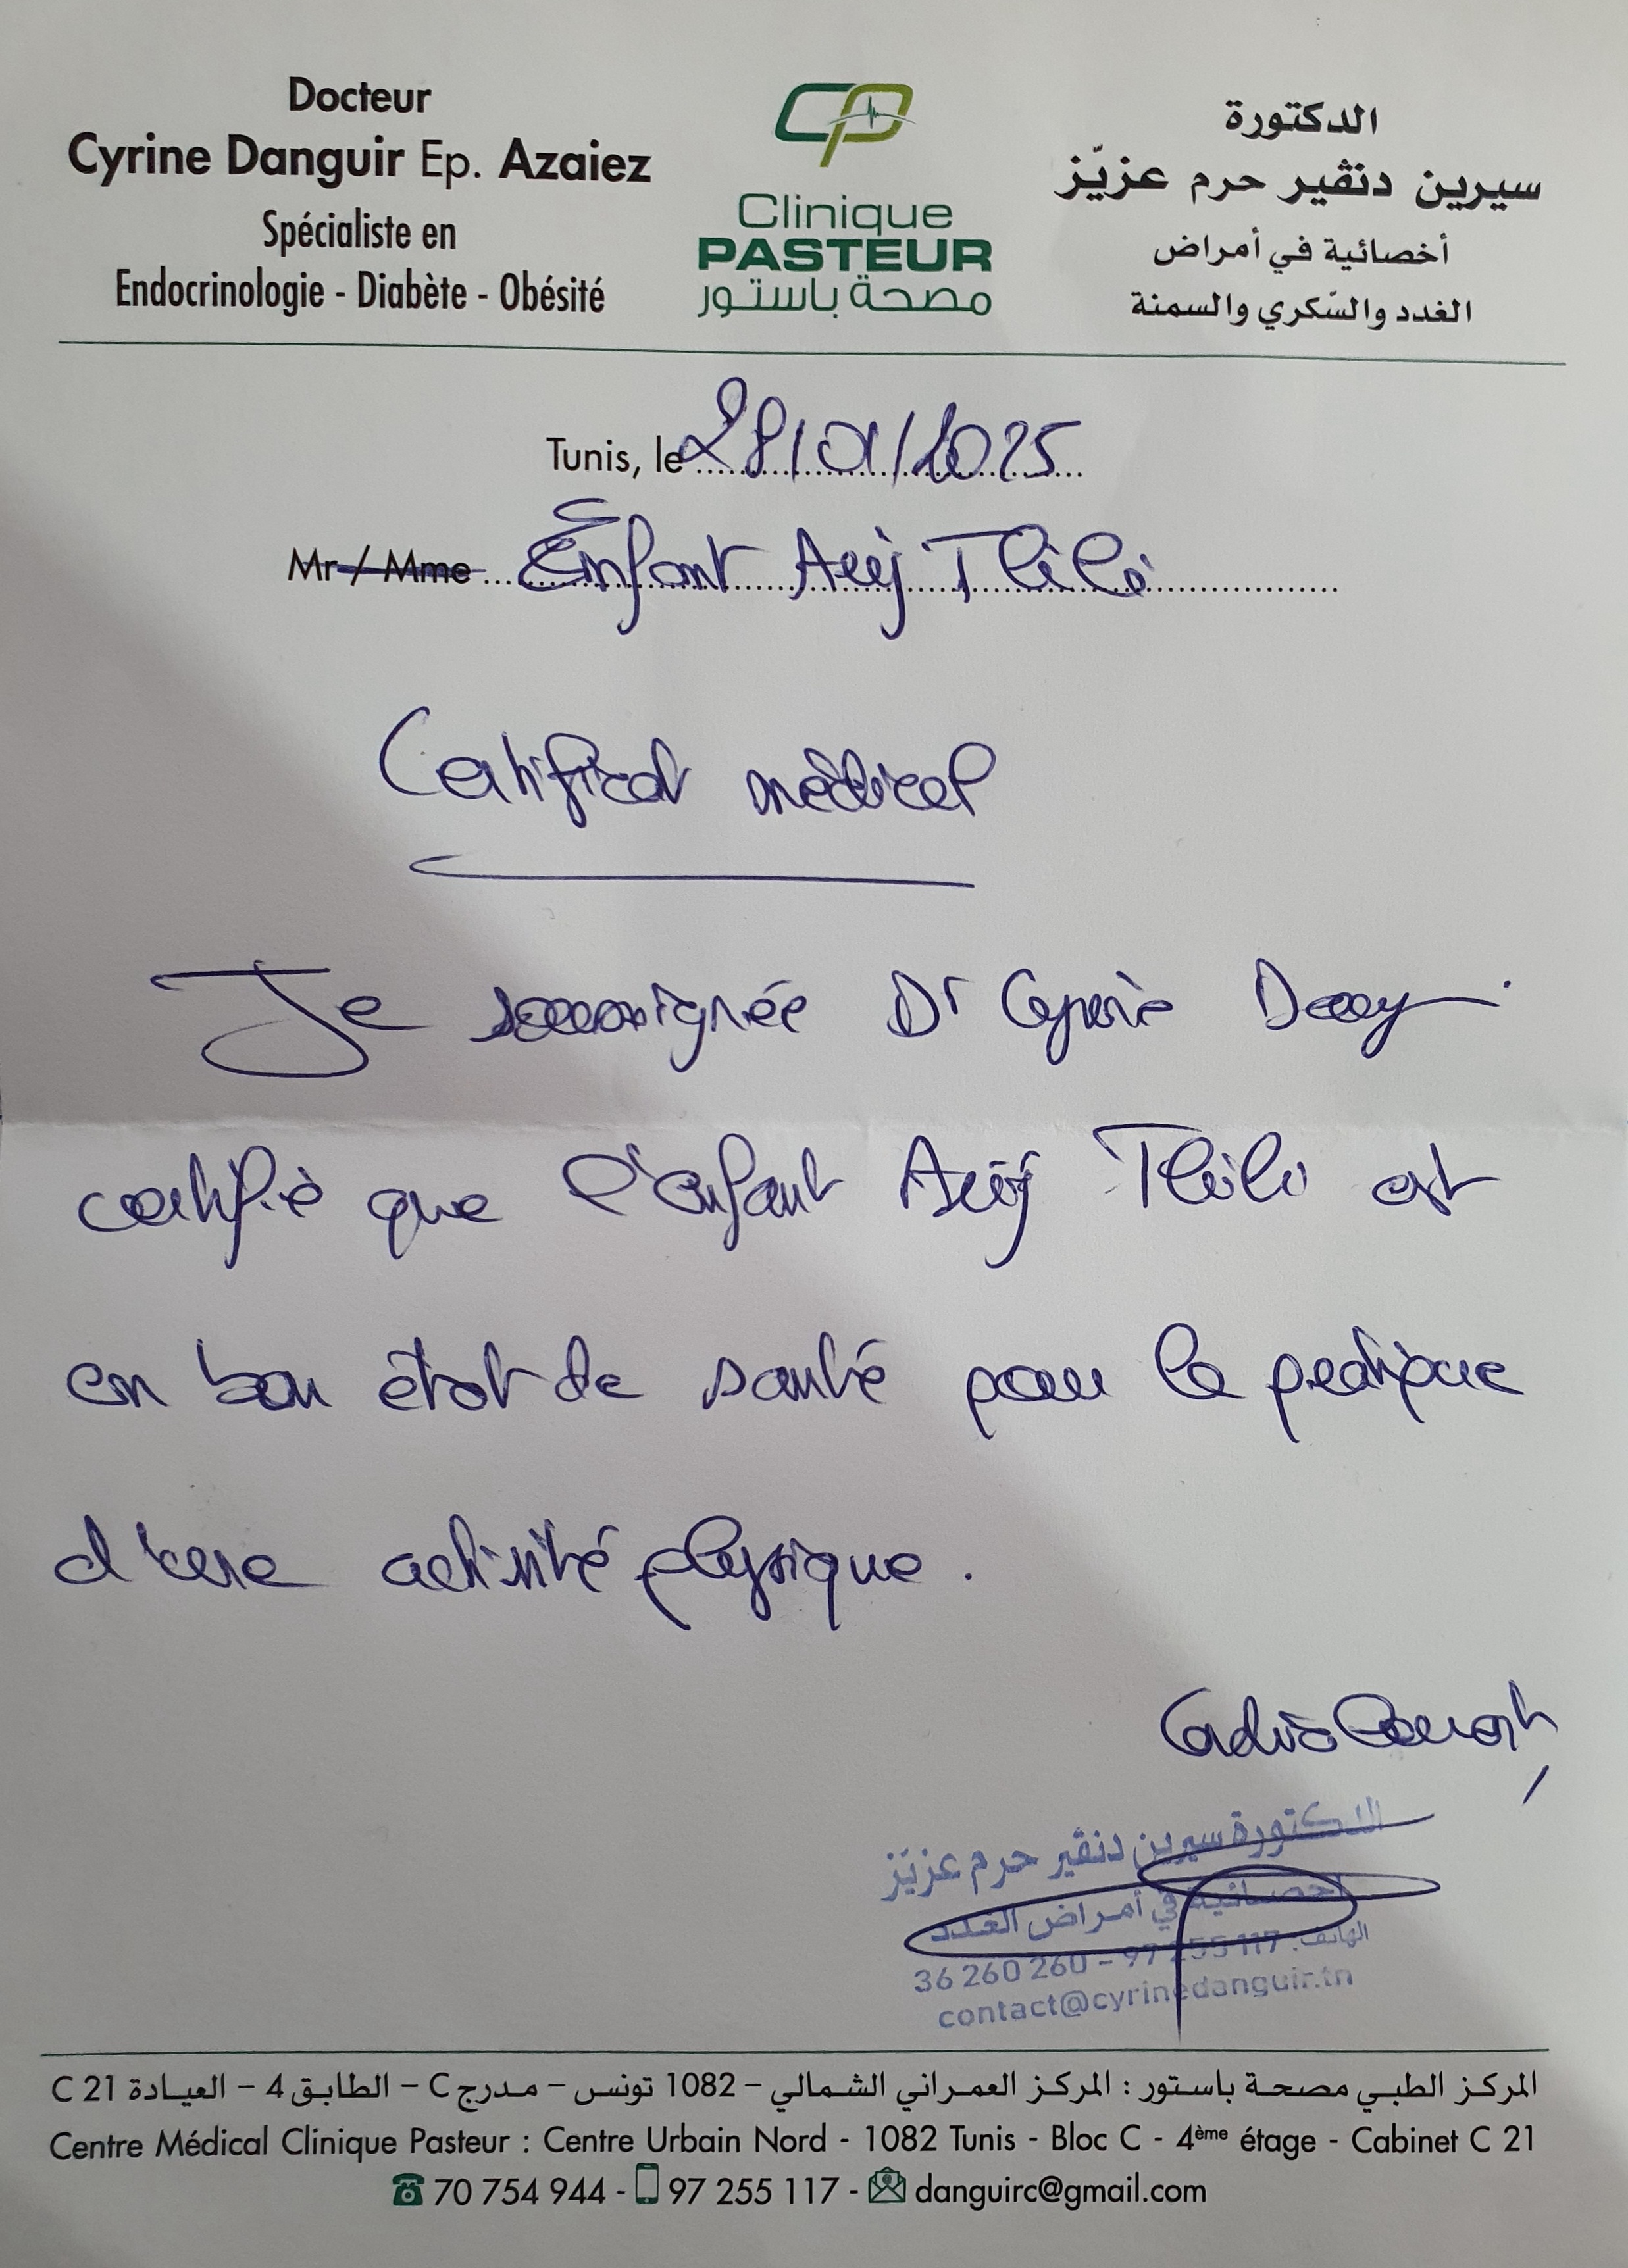 Docteur
Cyrine Danguir Ep. Azaiez
Spécialiste en
Endocrinologie - Diabète - Obésité
Clinique
PASTEUR
مصحة باستور
الدكتورة
سيرين دنڨير حرم عزيّز
أخصائية في أمراض
الغدد والسّكري والسمنة
Tunis, le 28/01/2025
Mr / Mme Enfant Tlili
Certificat médical
Je soussignée Dr Cyrine
certifie que l'enfant Tlili est
en bon état de santé pour la pratique
d'une activité physique.
الدكتورة سيرين دنڨير حرم عزيّز
أخصائية في أمراض الغدد
الهاتف: 117 255 97 - 260 260 36
contact@cyrinedanguir.tn
المركز الطبي مصحة باستور : المركز العمراني الشمالي – 1082 تونس – مدرج C – الطابق 4 – العيادة C 21
Centre Médical Clinique Pasteur : Centre Urbain Nord - 1082 Tunis - Bloc C - 4ème étage - Cabinet C 21
70 754 944 - 97 255 117 - danguirc@gmail.com